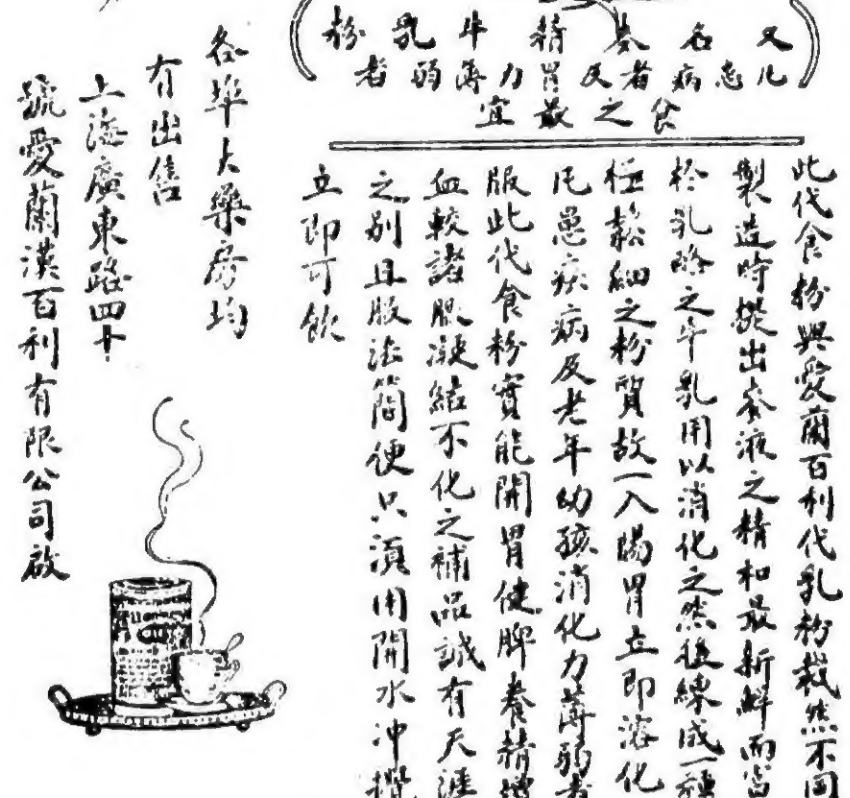 又名養精牛乳粉
凡患病者及胃力薄弱者
食之最宜
此代食粉與愛蘭百利代乳粉截然不同
製造時提出麥液之精和最新鮮而富
於乳酪之牛乳用以消化之然後練成一種
極鬆細之粉質故一入腸胃立即溶化
凡患疾病及老年幼孩消化力薄弱者
服此代食粉實能開胃健脾養精增
血較諸服凝結不化之補品誠有天涯
之別且服法簡便只須用開水冲攪
立即可飲
各埠大藥房均
有出售
上海廣東路四十
號愛蘭漢百利有限公司啟